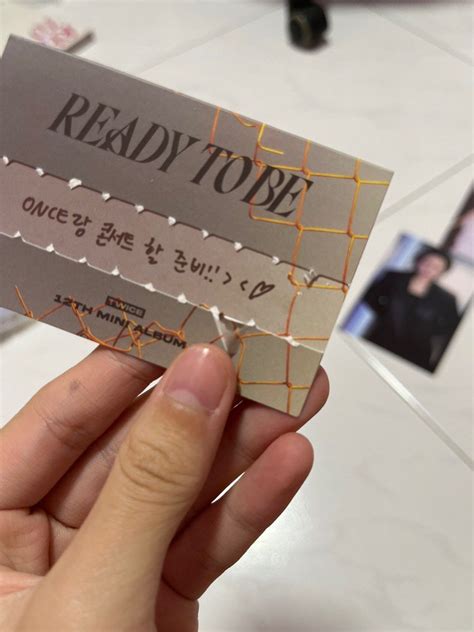 READY TO BE
ONCE랑 콘서트 할 준비!! > < ♡
TWICE
12TH MINI ALBUM